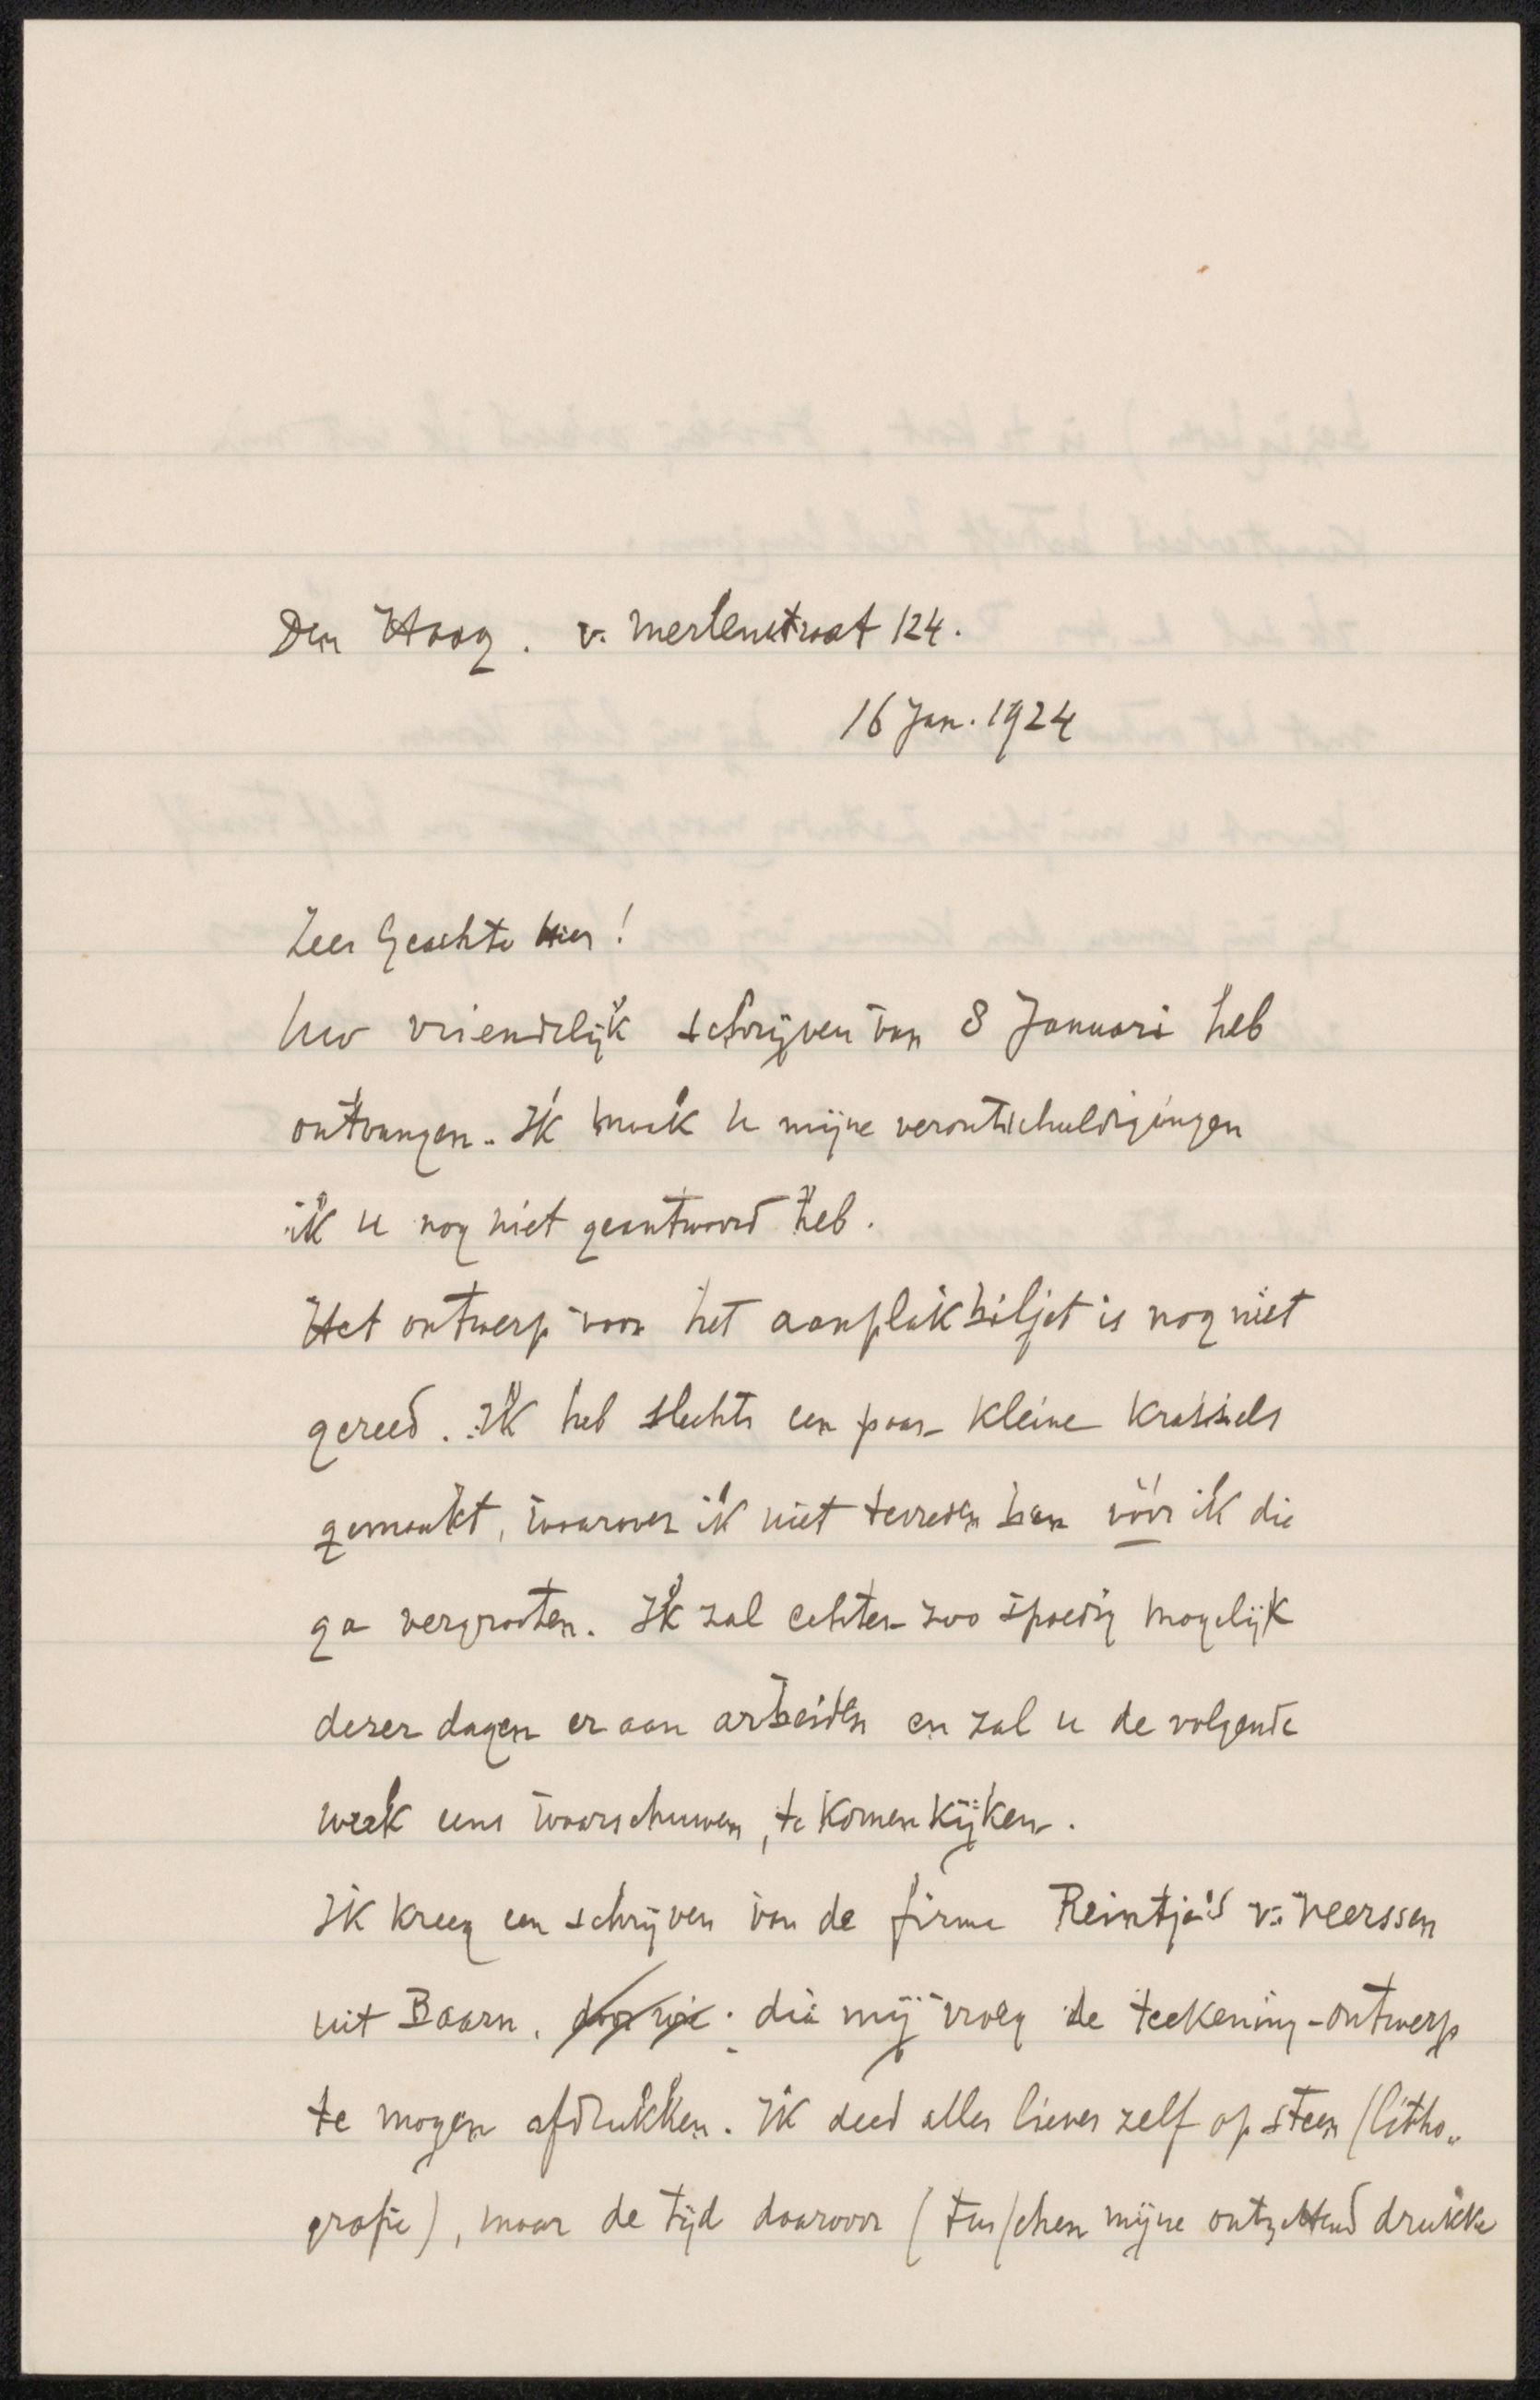 Den Haag. v. Merlenstraat 124.
16 Jan. 1924
Zeer Geachte Heer!
Uw vriendelijk schrijven van 8 Januari heb
ontvangen. Ik maak u mijne verontschuldigingen
ik u nog niet geantwoord heb.
Het ontwerp voor het aanplakbiljet is nog niet
gereed. Ik heb slechts een paar kleine krabbels
gemaakt, waarover ik niet tevreden ben vóór ik die
ga vergrooten. Ik zal echter zoo spoedig mogelijk
dezer dagen er aan arbeiden en zal u de volgende
week eens waarschuwen, te komen kijken.
Ik kreeg een schrijven van de firma Reintje's v. Heerssen
uit Baarn, die mij vroeg de teekening-ontwerp
te mogen afdrukken. Ik deed alles liever zelf op steen (litho„
grafie), maar de tijd daarvoor (tusschen mijne ontzettend drukke